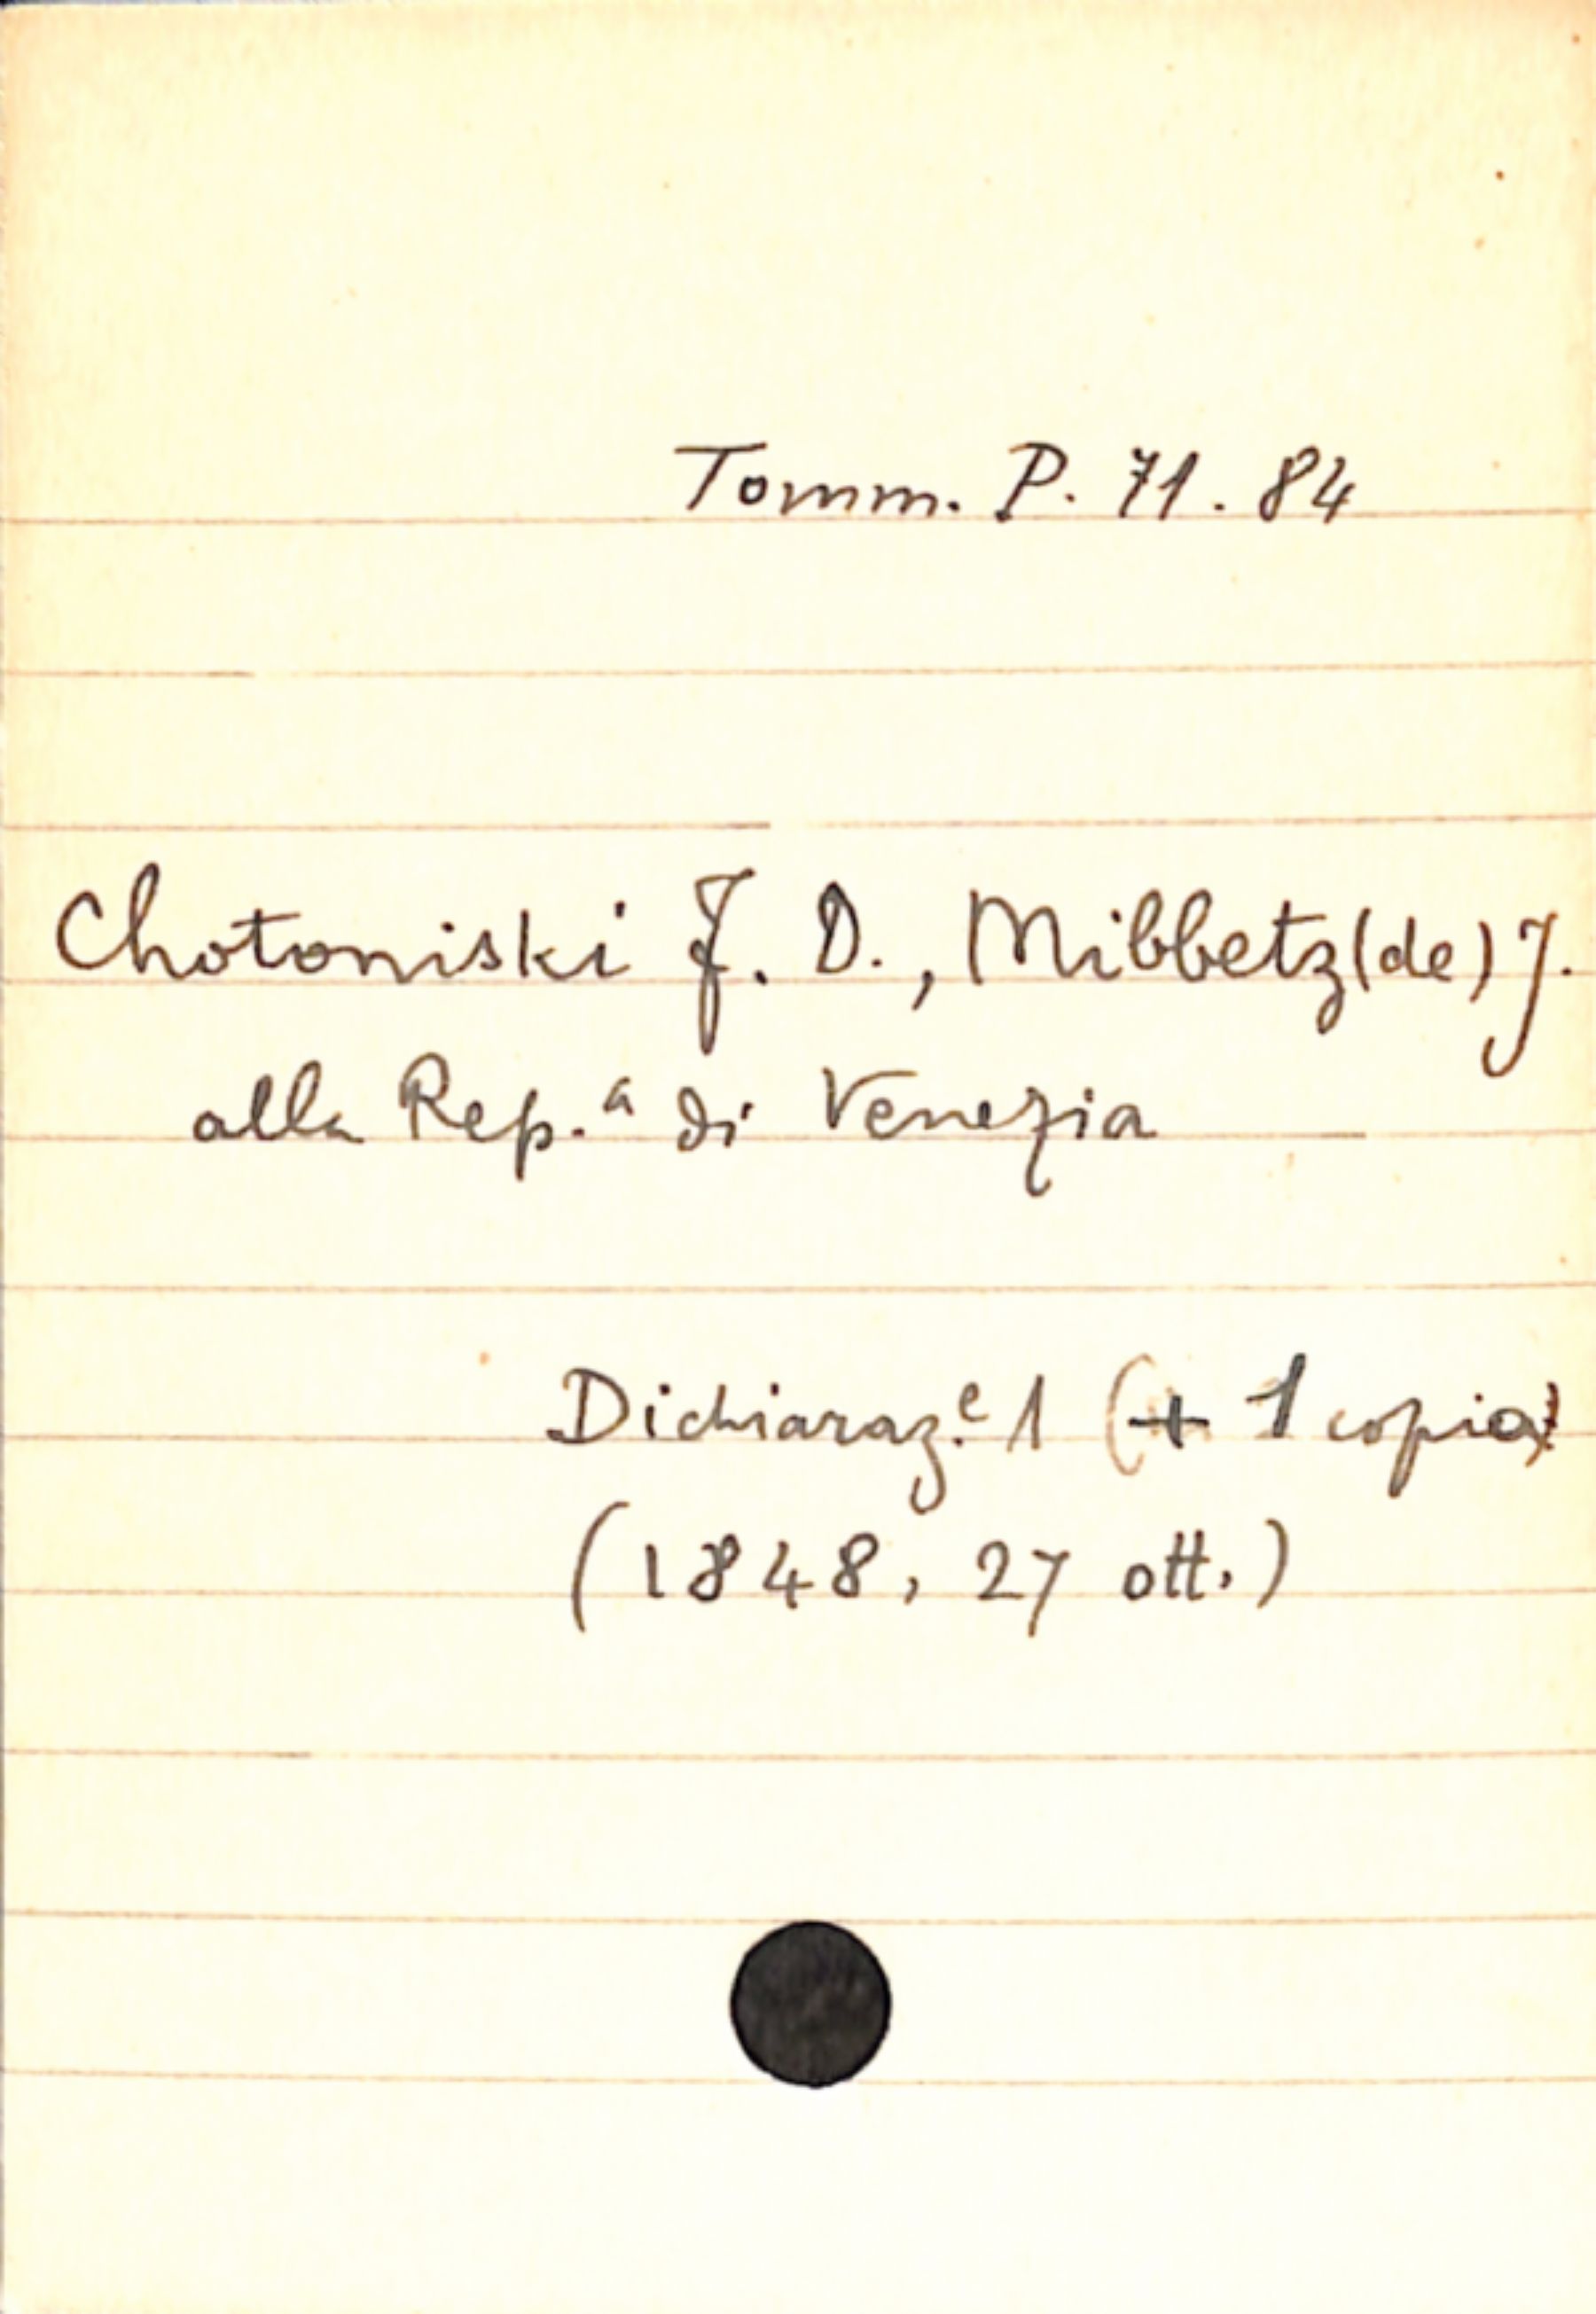 Tomm. P. 71. 84
Chotoniski F. D., Mibbetz (de) J.
alla Rep.ª di Venezia
Dichiaraz.e 1 (+ 1 copia)
(1848, 27 ott.)